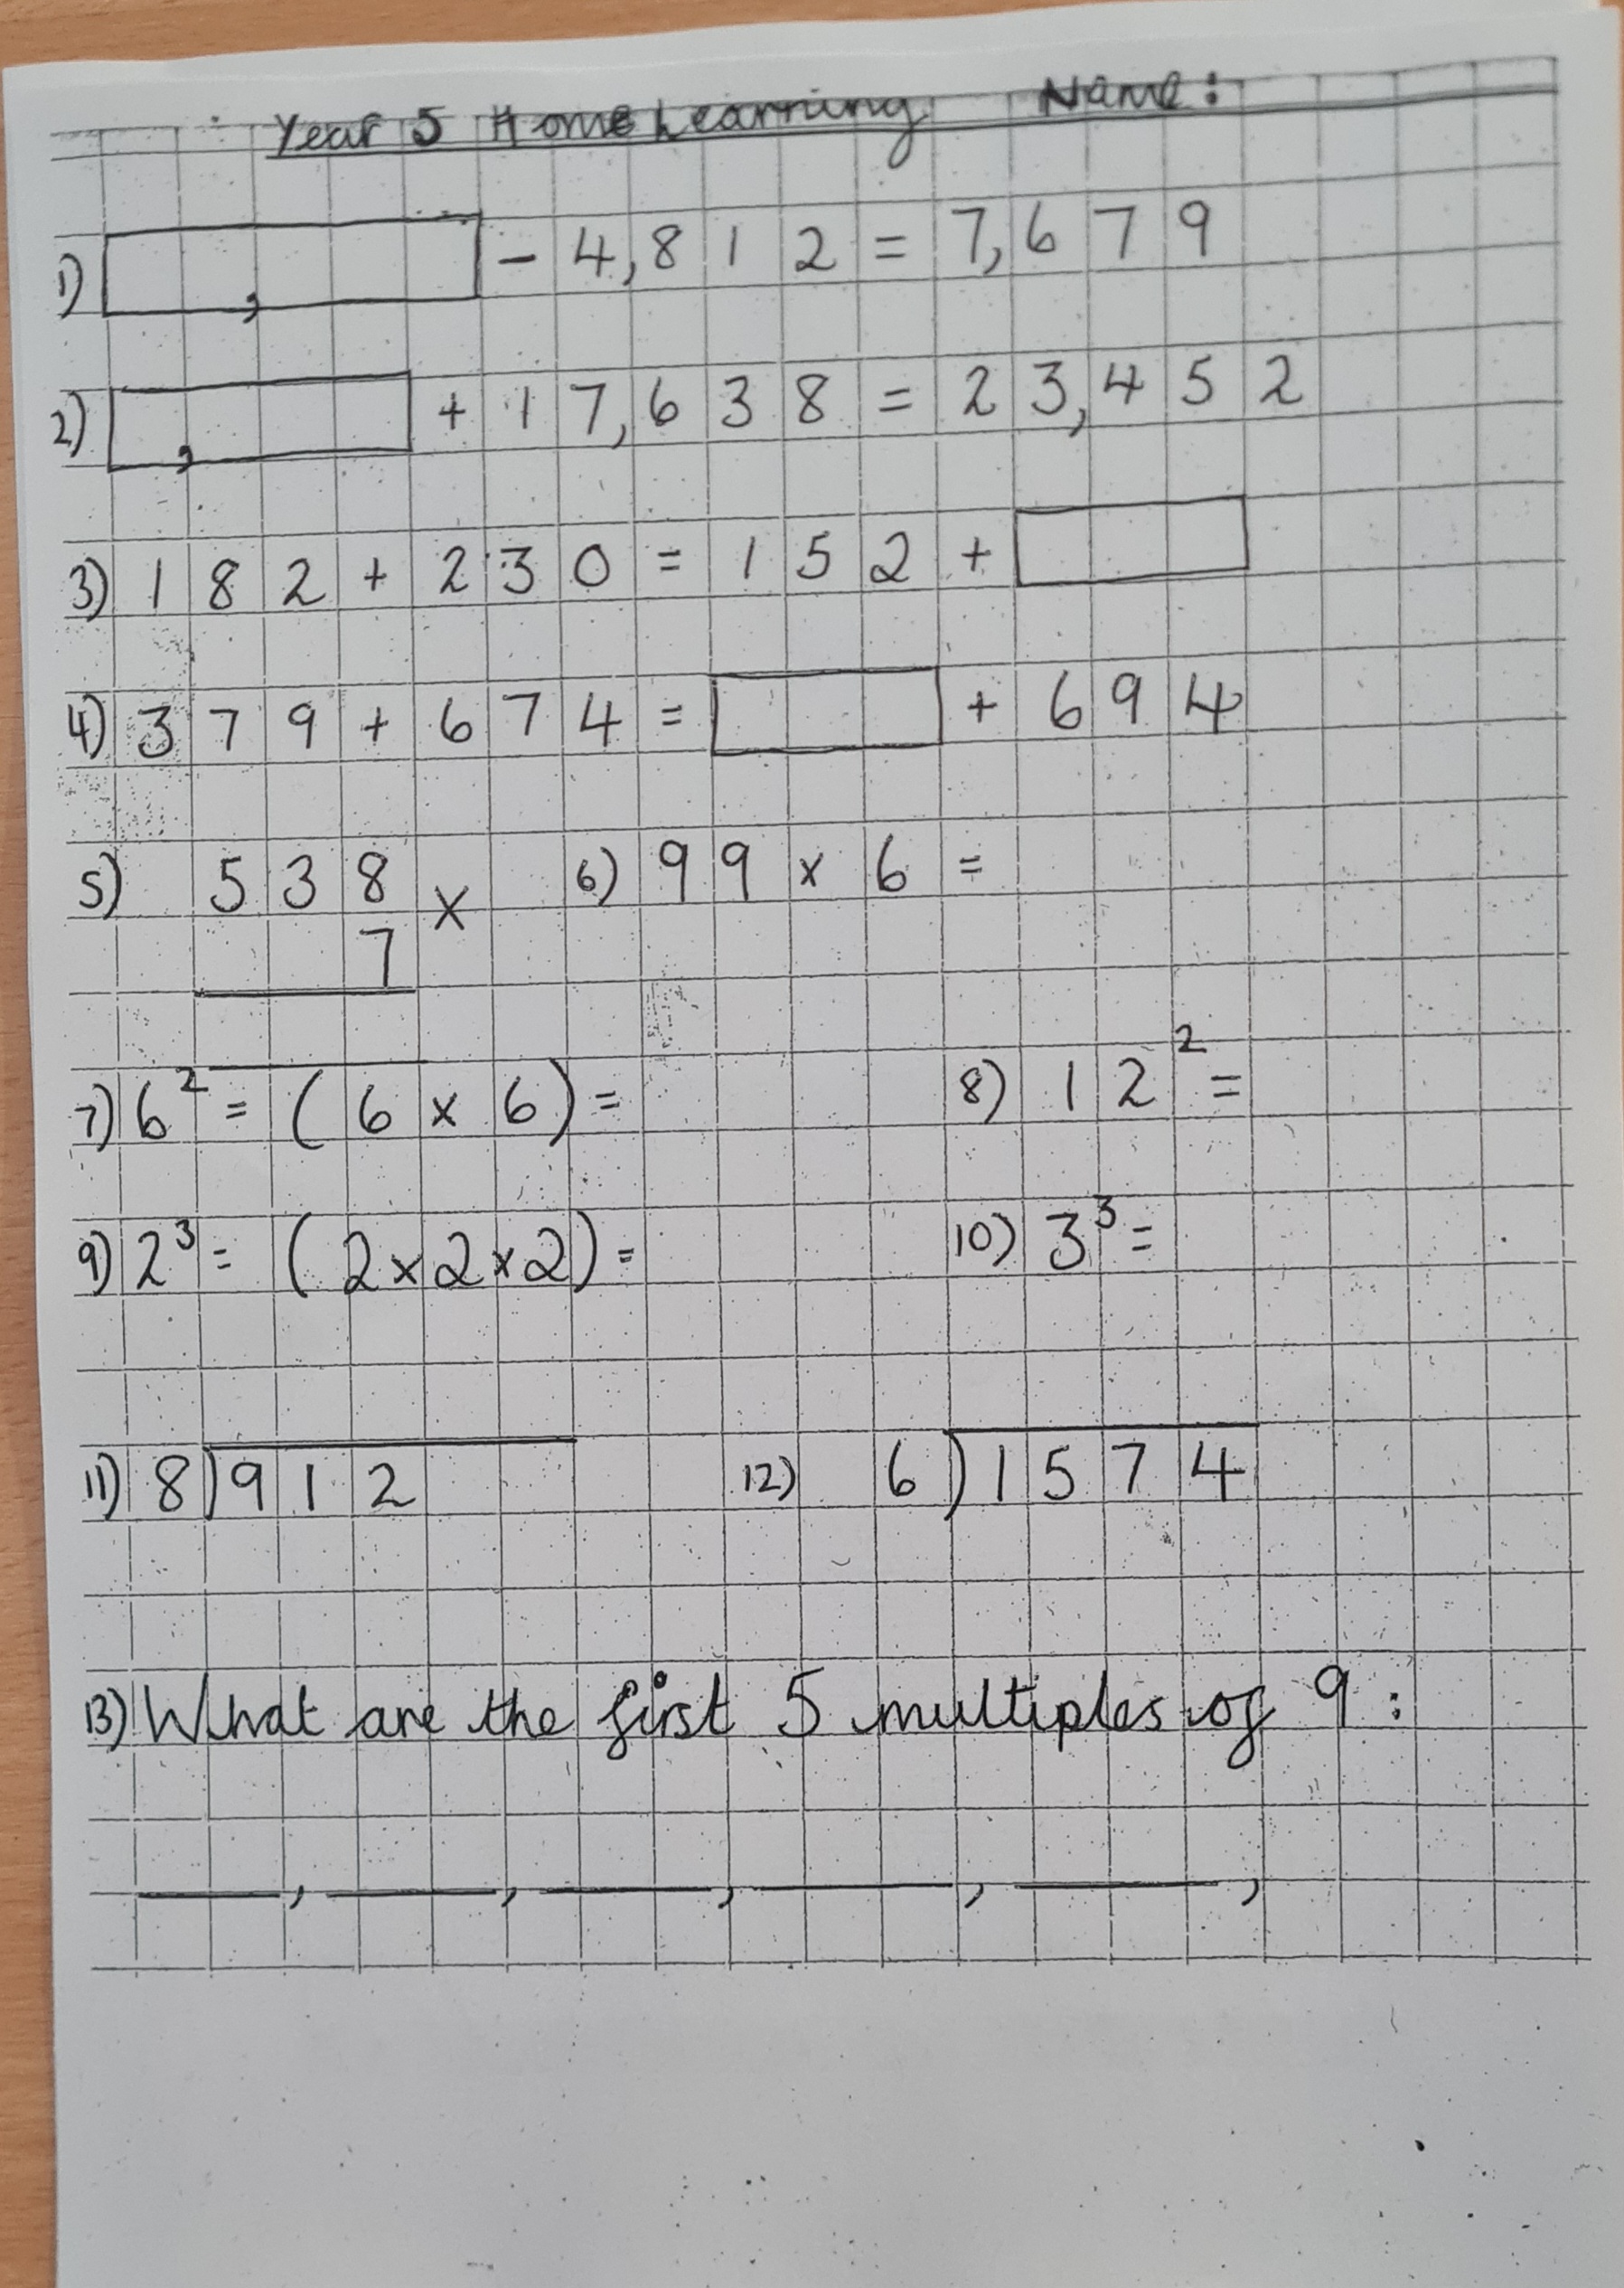 Year 5 Home Learning Name:
1) , - 4,812 = 7,679
2) , + 17,638 = 23,452
3) 182 + 230 = 152 +
4) 379 + 674 = + 694
5) 538 × 6) 99 × 6 =
7
7) 6² = (6 × 6) = 8) 12² =
9) 2³ = (2 × 2 × 2) = 10) 3³ =
11) 8)912 12) 6)1574
13) What are the first 5 multiples of 9:
____, ____, ____, ____, ____,